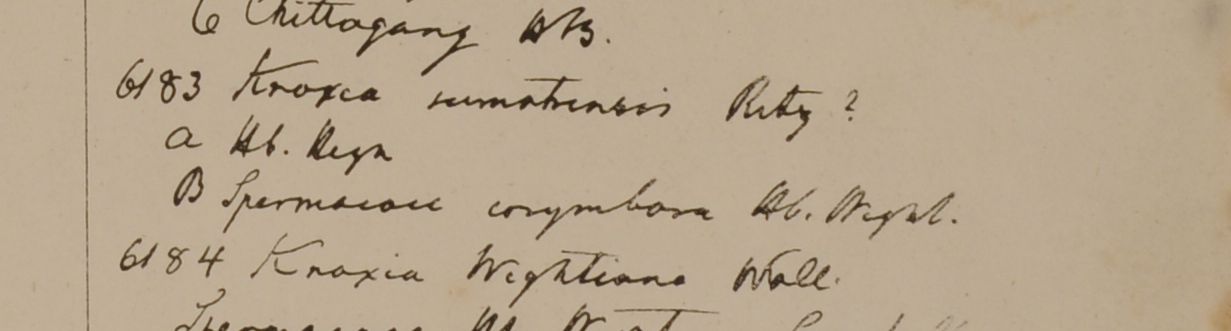 6 Chittagang HB.
6183 Knoxia sumatrensis Retz ?
a Hb. Heyn
B Spermacoce corymbosa Hb. Wight.
6184 Knoxia Wightiana Wall.
Spermacoce Hb. Wight